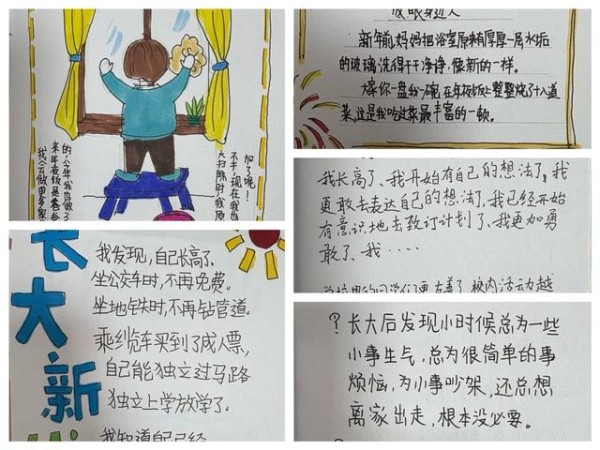 加了呢!
不干,现在我
大扫除时,我原
的,今年我
来年夜饭是爸爸
我会做
新年前,妈妈把浴室原来有厚厚一层水垢
的玻璃,洗得干干净净,像新的一样。
大家你一盘我一碗,在年夜饭处整整烧了十八道
菜,这是我吃过菜最丰富的一顿。
我长高了、我开始有自己的想法了。我
更敢去表达自己的想法了,我已经开始
有意识地去致订计划了、我更加勇
敢了、我·····
长大新
我发现,自己长高了。
坐公交车时,不再免费。
坐地铁时,不再钻管道。
乘缆车买到了成人票,
自己能独立过马路
独立上学放学了。
我知道自己已经
?长大后发现小时候总为一些
小事生气,总为很简单的事
烦恼,为小事吵架,还总想
离家出走,根本没必要。